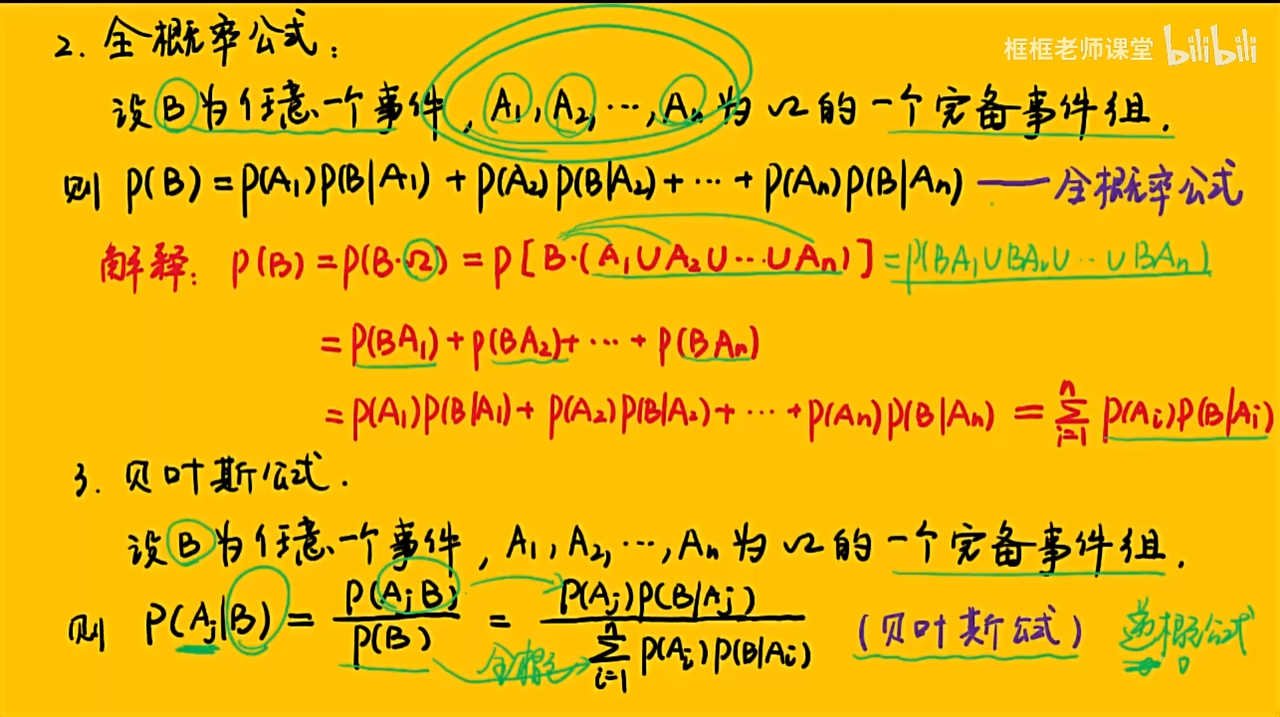 2. 全概率公式：
框框老师课堂 bilibili
设B为任意一个事件，A₁，A₂，…，Aₙ为Ω的一个完备事件组.
则 P(B)=P(A₁)P(B|A₁)+P(A₂)P(B|A₂)+…+P(Aₙ)P(B|Aₙ) —— 全概率公式
解释：P(B)=P(B·Ω)=P[B·(A₁∪A₂∪…∪Aₙ)]=P(BA₁∪BA₂∪…∪BAₙ)
=P(BA₁)+P(BA₂)+…+P(BAₙ)
=P(A₁)P(B|A₁)+P(A₂)P(B|A₂)+…+P(Aₙ)P(B|Aₙ)=∑ⁿᵢ₌₁ P(Aᵢ)P(B|Aᵢ)
3. 贝叶斯公式.
设B为任意一个事件，A₁，A₂，…，Aₙ为Ω的一个完备事件组.
则 P(Aⱼ|B)=P(AⱼB)/P(B)=P(Aⱼ)P(B|Aⱼ)/∑ⁿᵢ₌₁ P(Aᵢ)P(B|Aᵢ) (贝叶斯公式) 概公式
全概